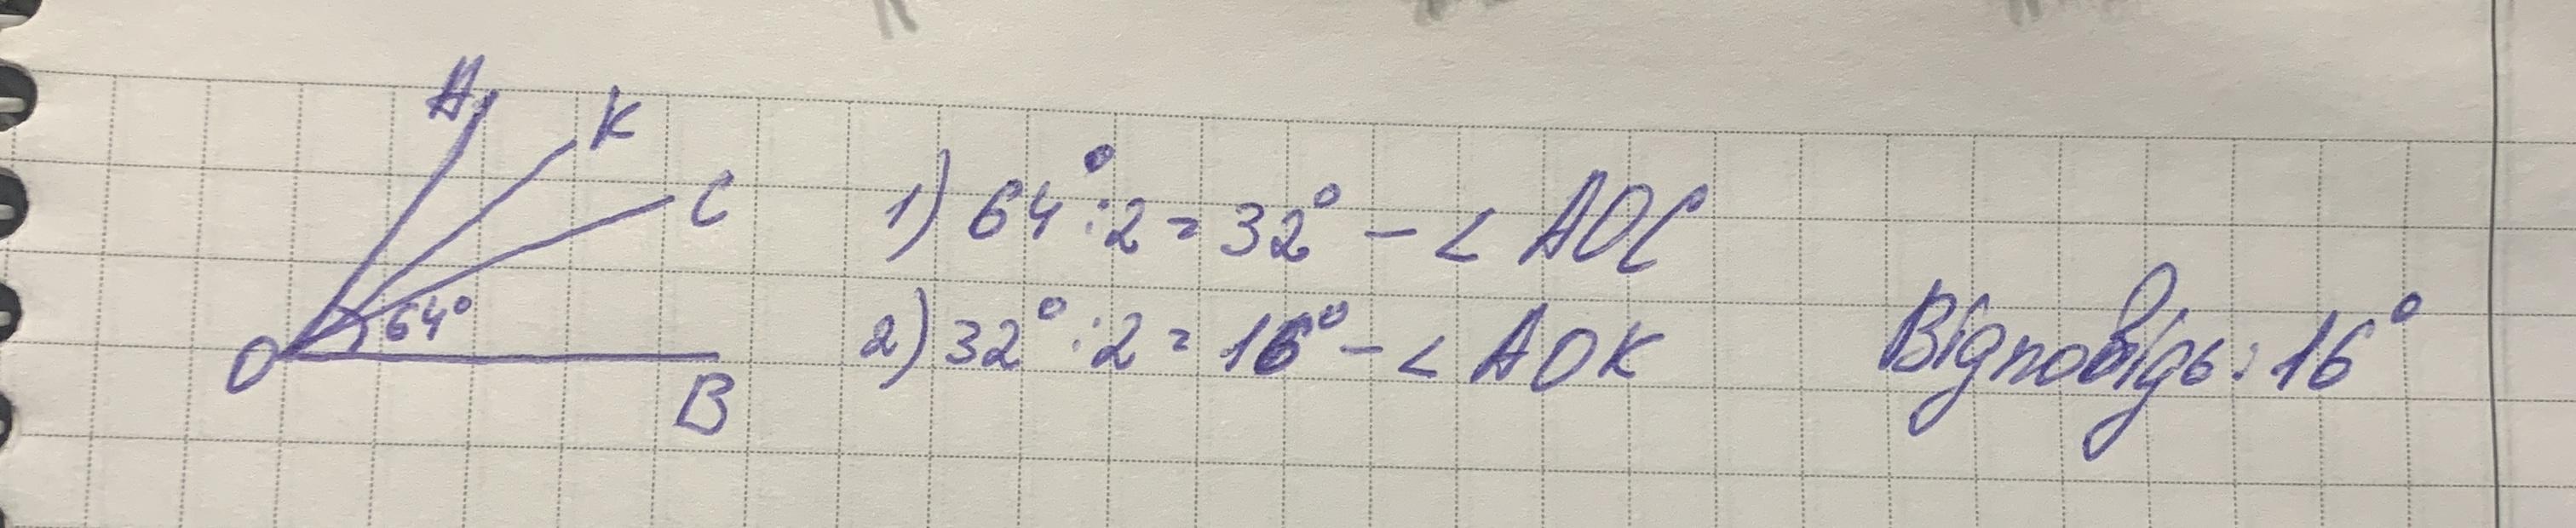 A
K
C
64°
O
B
1) 64° : 2 = 32° - < AOC
2) 32° : 2 = 16° - < AOK
Відповідь: 16°